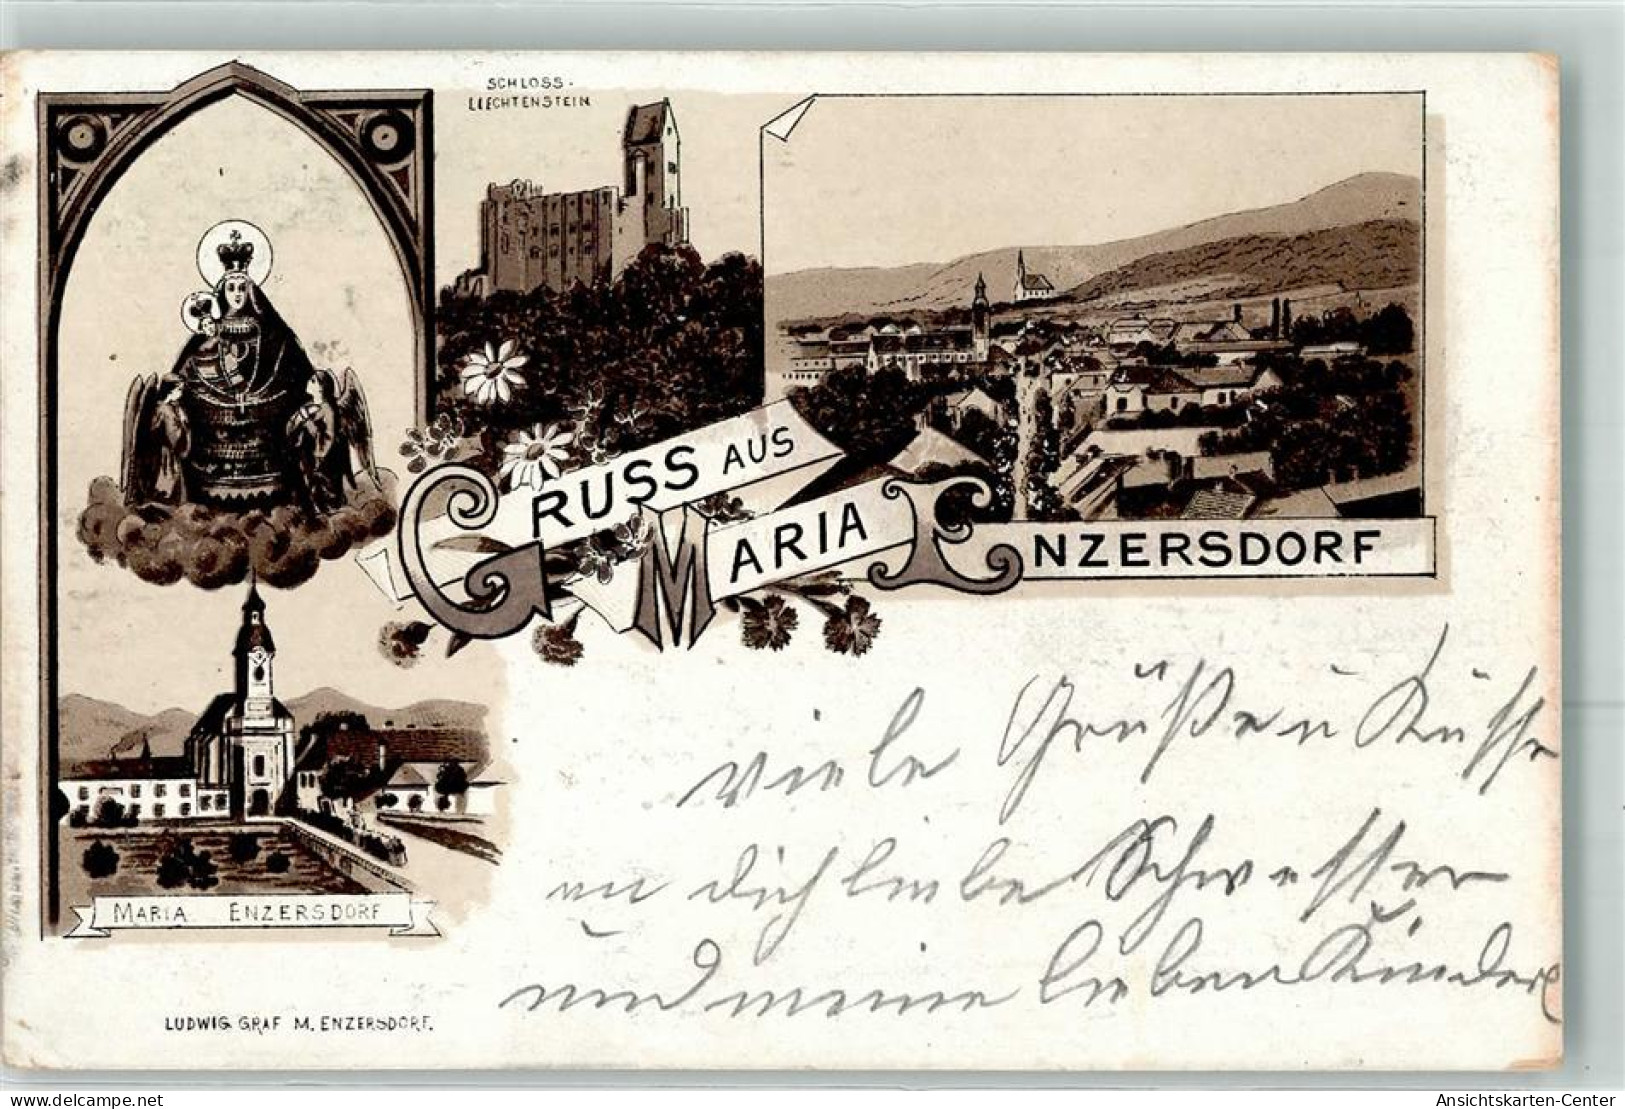 SCHLOSS.
LIECHTENSTEIN
GRUSS AUS
MARIA ENZERSDORF
viele Grüße u Küsse
an dich liebe Schwester
und meine lieben Kinder
MARIA ENZERSDORF
LUDWIG GRAF M. ENZERSDORF.
delcampe.net
the_postcard
Ansichtskarten-Center